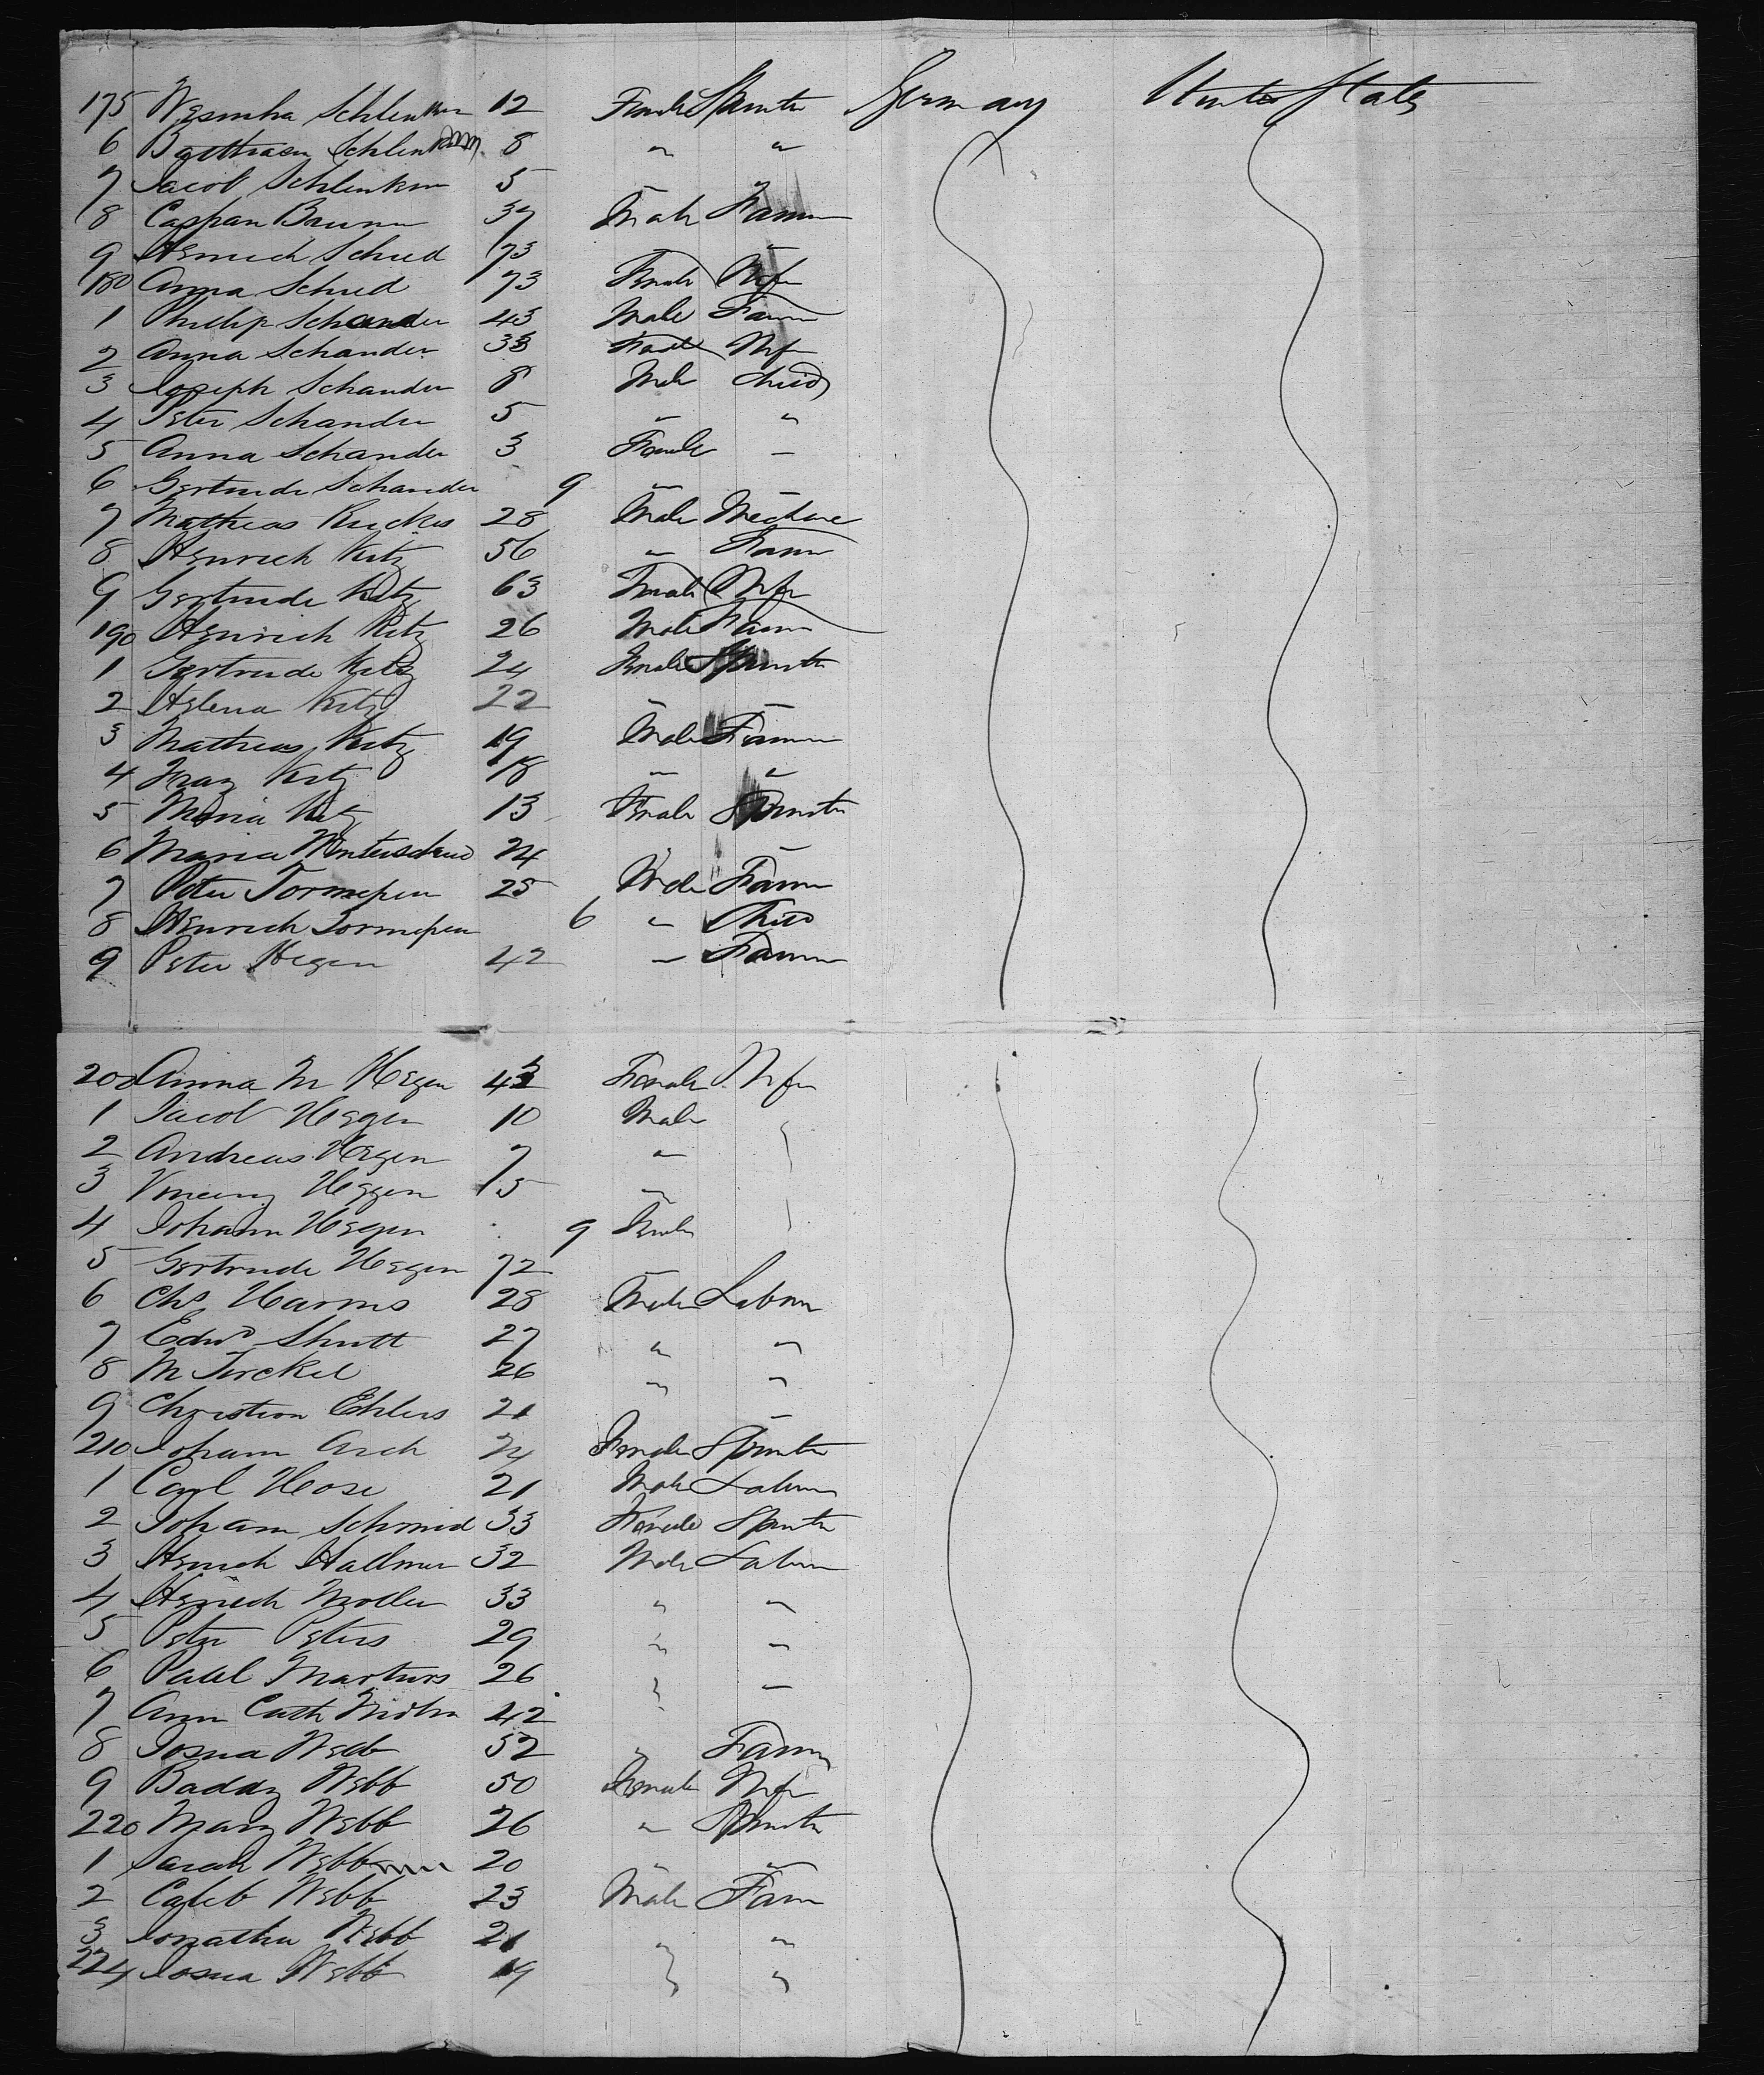 175 Schlenker 12 Female Spinster Germany United States
6 Schlenker 8 " "
7 Jacob Schlenker 5 " "
8 Caspar Braun 37 Male Farmer
9 Heinrich Schied 73 "
180 Anna Schied 73 Female Wife
1 Phillip Schander 43 Male Farmer
2 Anna Schander 33 Female Wife
3 Joseph Schander 8 Male Child
4 Peter Schander 5 " "
5 Anna Schander 3 Female "
6 Gertrude Schander 9 " "
7 Mathias 28 Male Mechanic
8 Heinrich Kitz 56 " Farmer
9 Gertrude Kitz 63 Female Wife
190 Heinrich Kitz 26 Male Farmer
1 Gertrude Kitz 24 Female Spinster
2 Helena Kitz 22 " "
3 Mathias Kitz 19 Male Farmer
4 Franz Kitz 18 " "
5 Maria Kitz 13 Female Spinster
6 Maria 24 " "
7 Peter 25 Male Farmer
8 Heinrich 6 " Child
9 Peter Hegen 42 " Farmer
200 Anna M Hegen 42 Female Wife
1 Jacob Heggen 10 Male
2 Andreas Hegen 7 "
3 Heggen 5 "
4 Johann Hegen 9 Female
5 Gertrude Hegen 72 "
6 Chs Harms 28 Male Labour
7 Edwd Shutt 27 " "
8 M Turckel 26 " "
9 Christian Ehlers 21 "
210 Johann Arch 24 Female Spinster
1 Carl Hose 21 Male Labour
2 Johann Schmid 33 Female Spinster
3 Heinrich Hallmer 32 Male Labour
4 Heinrich Moller 33 " "
5 Peter Peters 29 " "
6 Paul Martins 26 " "
7 Ann Cath 42 "
8 Josua Webb 52 " Farmer
9 Baddy Webb 50 Female Wife
220 Mary Webb 26 " Spinster
1 Sarah Webb 20 " "
2 Caleb Webb 23 Male Farmer
3 Jonathan Webb 21 " "
224 Josua Webb 19 " "